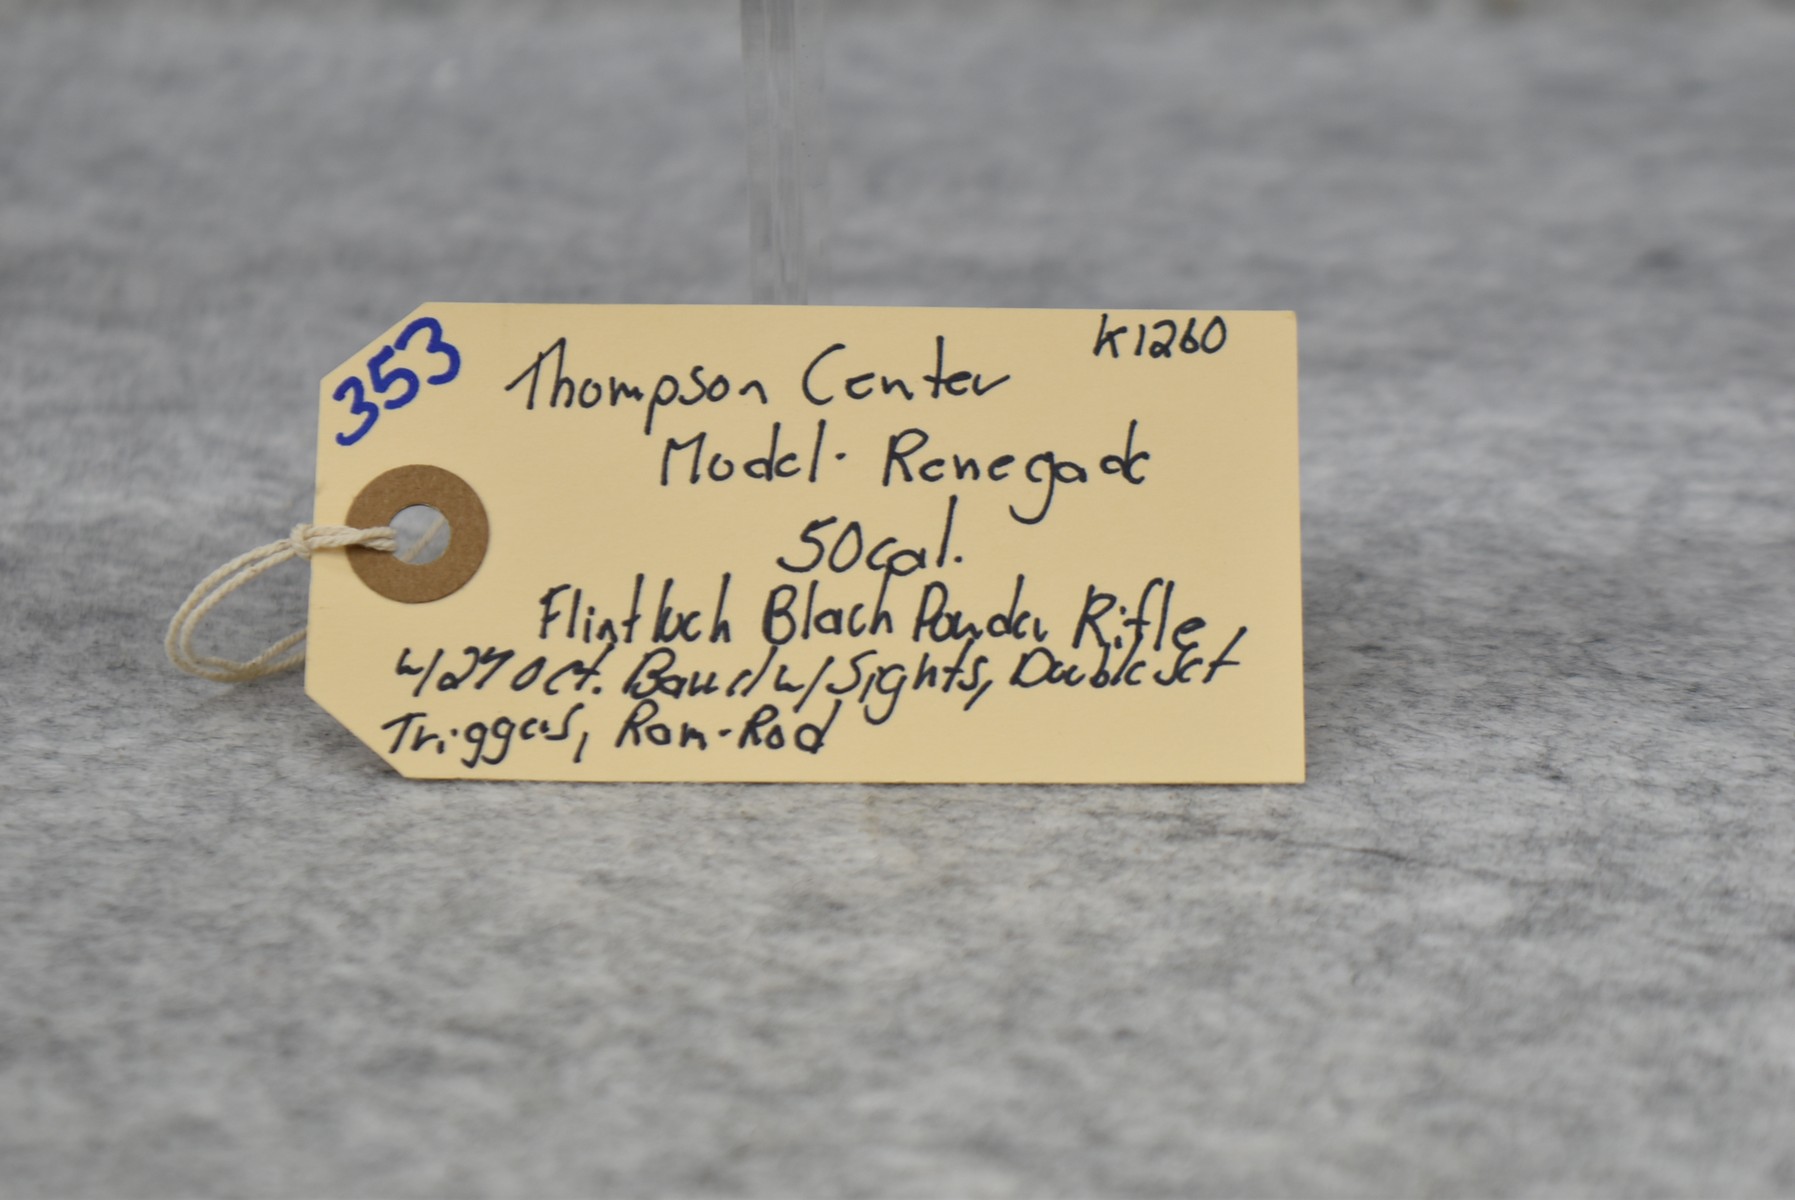 353
K1260
Thompson Center
Model- Renegade
50 cal.
Flintlock Black Powder Rifle,
w/27 Oct. Barrel w/Sights, Double Set
Triggers, Ram-Rod